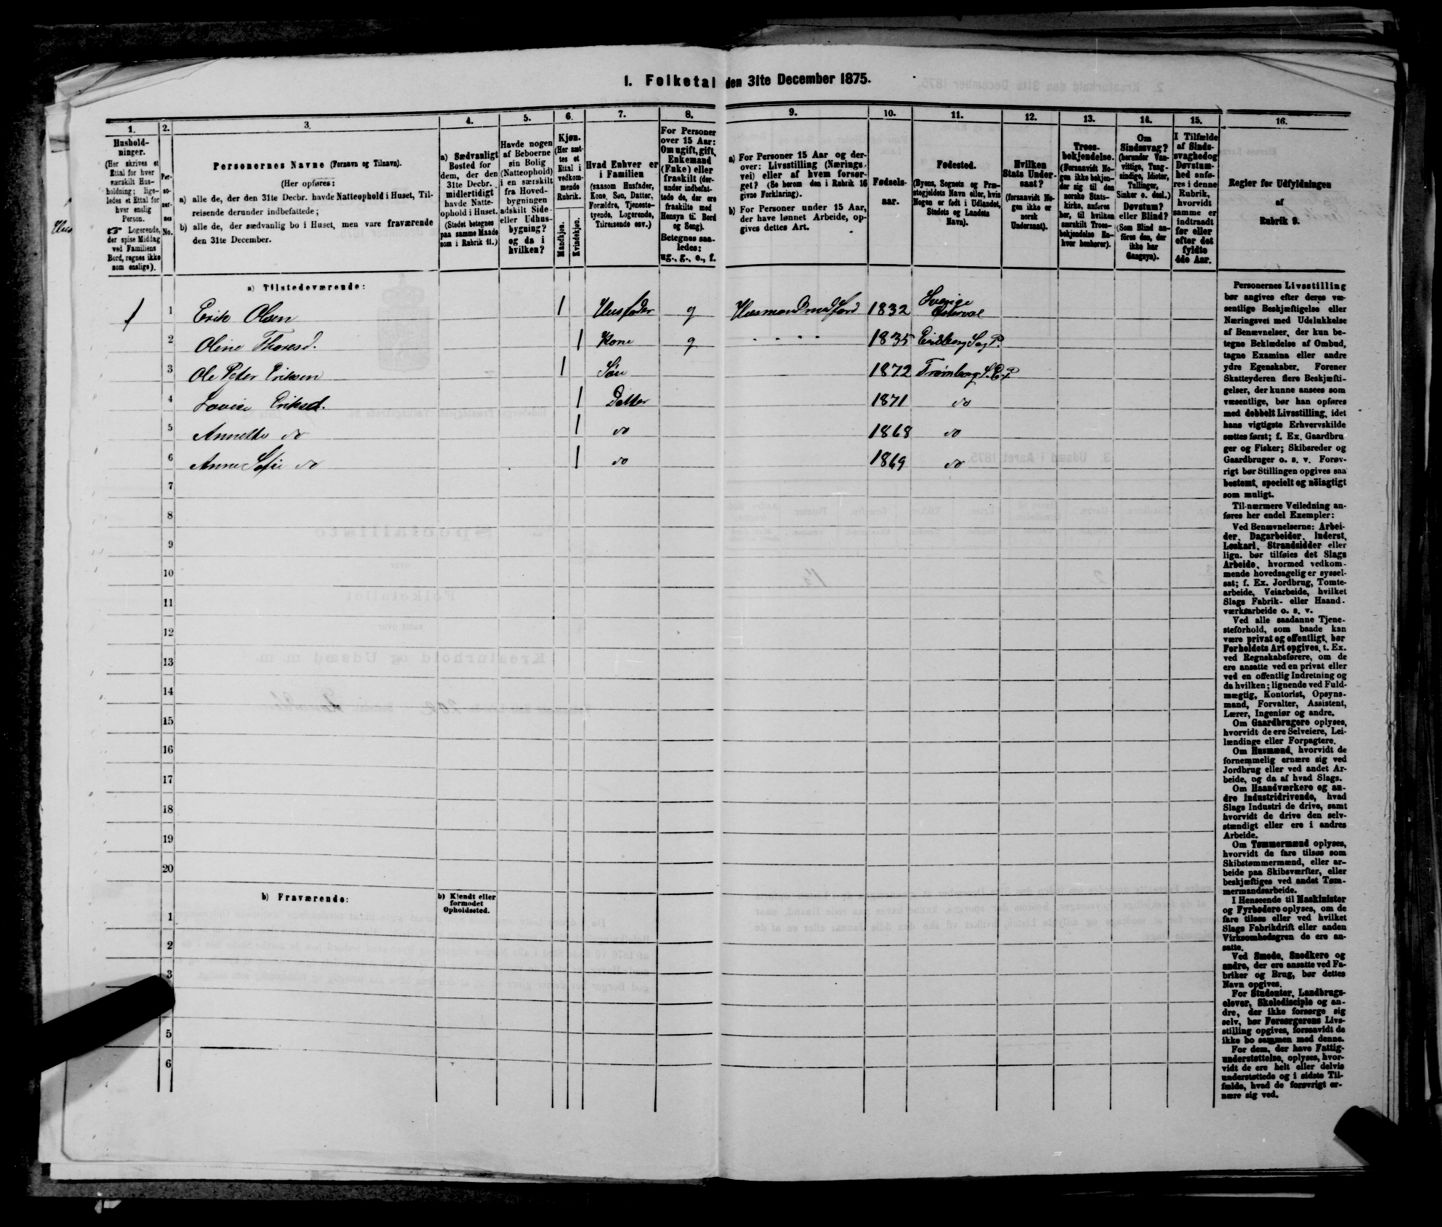 1. Folketal den 31te December 1875.
1.
2.
3.
4.
5.
6.
7.
8.
9.
10.
11.
12.
13.
14.
15.
16.
Hushold-
ninger.
(Her skrives et
Ettal for hver
særskilt Hus-
holdning; lige-
ledes et Ettal for
hver enslig
Person.
☞ Logerende,
der spise Middag
ved Familiens
Bord, regnes ikke
som enslige).
Per-
so-
ner-
nes
No.
Personernes Navne (Fornavn og Tilnavn).
(Her opføres:
a) alle de, der den 31te Decbr. havde Natteophold i Huset, Til-
reisende derunder indbefattede;
b) alle de, der sædvanlig bo i Huset, men vare fraværende
den 31te December.
a) Sædvanligt
Bosted for
dem, der den
31te Decbr.
midlertidigt
havde Natte-
ophold i Huset.
(Stedet betegnes
paa samme Maade
som i Rubrik 11.)
Havde nogen
af Beboerne
sin Bolig
(Natteophold)
i en særskilt
fra Hoved-
bygningen
adskilt Side-
eller Udhus-
bygning?
og da i
hvilken?
Kjøn.
(Her sæt-
tes et
Ettal i
vedkom-
mende
Rubrik.
Mandkjøn.
Kvindekjøn.
Hvad Enhver er
i Familien
(saasom Husfader,
Kone, Søn, Datter,
Forældre, Tjeneste-
tyende, Logerende,
Tilreisende osv.)
For Personer
over 15 Aar:
Om ugift, gift,
Enkemand
(Enke) eller
fraskilt (der-
under indbefat-
tede de, der ere
fraskilte med
Hensyn til Bord
og Seng).
Betegnes saa-
ledes:
ug., g., e., f.
a) For Personer 15 Aar og der-
over: Livsstilling (Nærings-
vei) eller af hvem forsør-
get? (Se herom den i Rubrik 16
givne Forklaring).
b) For Personer under 15 Aar,
der have lønnet Arbeide, op-
gives dettes Art.
Fødsels-
aar.
Fødested.
(Byens, Sognets og Præ-
stegjeldets Navn eller, hvis
Nogen er født i Udlandet,
Stedets og Landets
Navn).
Hvilken
Stats Under-
saat?
(forsaavidt No-
gen ikke er
norsk
Undersaat).
Troes-
bekjendelse.
(Forsaavidt No-
gen ikke bekjen-
der sig til den
norske Stats-
kirke, anføres
her, til hvilken
særskilt Troes-
bekjendelse En-
hver henhører).
Om
Sindssvag?
(herunder Van-
vittige, Tung-
sindige, Idioter,
Tullinger,
Sinker o. desl.).
Døvstum?
eller Blind?
(Som Blind an-
føres den, der
ikke har
Gangsyn).
I Tilfælde
af Sinds-
svaghed og
Døvstum-
hed anfø-
res i denne
Rubrik,
hvorvidt
samme er
indtraadt
før eller
efter det
fyldte
4de Aar.
Regler for Udfyldningen
af
Rubrik 9.
a) Tilstedeværende:
1 1 Erik Olsen 1 Husfader g Husmand med Jord 1832 Sverige
2 Oline Thoresd. 1 Kone g 1835 Eidsberg S. og P.
3 Ole Peter Eriksen 1 Søn 1872 Trømborg S. E. P.
4 Lovise Eriksd. 1 Datter 1871 do
5 Annette do 1 do 1868 do
6 Anne Sofie do 1 do 1869 do
7
8
9
10
11
12
13
14
15
16
17
18
19
20
b) Fraværende:
b) Kjendt eller
formodet
Opholdssted.
1
2
3
5
6
Personernes Livsstilling
bør angives efter deres væ-
sentlige Beskjæftigelse eller
Næringsvei med Udelukkelse
af Benævnelser, der kun be-
tegne Beklædelse af Ombud,
tagne Examina eller andre
ydre Egenskaber. Forener
Skatteyderen flere Beskjæfti-
gelser, der kunne ansees som
væsentlige, bør han opføres
med dobbelt Livsstilling, idet
hans vigtigste Erhvervskilde
sættes først; f. Ex. Gaardbru
ger og Fisker; Skibsreder og
Gaardbruger o. s. v. Forøv-
rigt bør Stillingen opgives saa
bestemt, specielt og nöiagtigt
som muligt.
Til nærmere Veiledning an-
føres her endel Exempler:
Ved Benævnelserne: Arbei-
der, Dagarbeider, Inderst,
Løskarl, Strandsidder eller
lign. bør tilføies det Slags
Arbeide, hvormed vedkom-
mende hovedsagelig er syssel-
sat; f. Ex. Jordbrug, Tomte-
arbeide, Veiarbeide, hvilket
Slags Fabrik- eller Haand-
værksarbeide o. s. v.
Ved alle saadanne Tjene-
steforhold, som baade kan
være privat og offentligt, bør
Forholdets Art opgives, t. Ex.
ved Regnskabsførere, om de
ere ansatte ved en privat eller
ved en offentlig Indretning og
da hvilken; lignende ved Fuld-
mægtig, Kontorist, Opsyns-
mand, Forvalter, Assistent,
Lærer, Ingeniør og andre.
Om Gaardbrugere oplyses,
hvorvidt de ere Selveiere, Lei-
lændinge eller Forpagtere.
Om Husmænd, hvorvidt de
fornemmelig ernære sig ved
Jordbrug eller ved andet Ar-
beide, og da af hvad Slags.
Om Haandværkere og an-
dre Industridrivende, hvad
Slags Industri de drive, samt
hvorvidt de drive den selv-
stændigt eller ere i andres
Arbeide.
Om Tømmermænd oplyses,
hvorvidt de fare tilsøs som
Skibstømmermænd, eller ar-
beide paa Skibsværfter, eller
beskjæftiges ved andet Tøm-
mermandsarbeide.
I Henseende til Maskinister
og Fyrbødere oplyses, om de
fare tilsøs eller ved hvilket
Slags Fabrikdrift eller anden
Virksomhedsgren de ere an-
satte.
Ved Smede, Snedkere og
andre, der ere ansatte ved Fa-
briker og Brug, bør dettes
Navn opgives.
For Studenter, Landbrugs-
elever, Skoledisciple og an-
dre, der ikke forsørge sig
selv, bør Forsørgerens Livs-
stilling opgives, forsaavidt de
ikke bo sammen med denne.
For dem, der have Fattig-
understøttelse, oplyses, hvor-
vidt de ere helt eller delvis
understøttede og i sidste Til-
fælde, hvad de forøvrigt er-
nære sig ved.